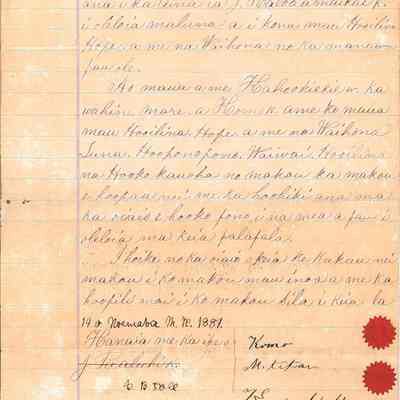 i oleloia maluna a i kona mau Hooilina
Hope a me na Waihona no ka manawa
pau ole.
No maua a me Hakookiekie w. ka
wahine mare a Komo k a me ke maua
mau Hooilina, Hope, a me na Waihona
Luna Hooponopono, Waiwai, Hooilina
na Hooko kauoha no makou ka makou
e hoopaa nei me ka hoohiki ana ma
ka oiaio e hooko pono i na mea a pau i
oleloia ma keia palapala.
I hoike no ka oiaio o keia ke kakau nei
makou i ko makou mau inoa a me ka
hoopili mai i ko makou Sila i keia la
14 o Novemaba M. H. 1881.
Hanaia me ka
Komo
J.